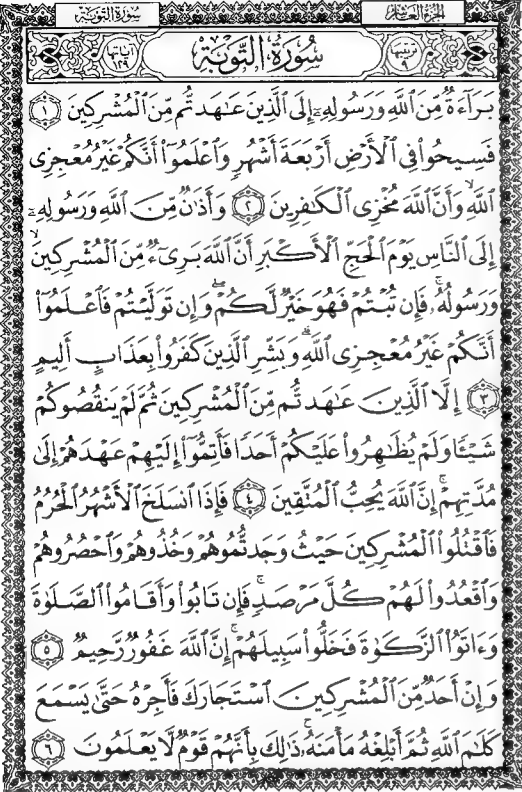 الجزء العاشر
سورة التوبة
ترتيبها ٩
سُورَةُ التَّوْبَةِ
آياتها ١٢٩
بَرَآءَةٌ مِّنَ ٱللَّهِ وَرَسُولِهِۦٓ إِلَى ٱلَّذِينَ عَٰهَدتُّم مِّنَ ٱلْمُشْرِكِينَ ١
فَسِيحُوا۟ فِى ٱلْأَرْضِ أَرْبَعَةَ أَشْهُرٍ وَٱعْلَمُوٓا۟ أَنَّكُمْ غَيْرُ مُعْجِزِى
ٱللَّهِ ۙ وَأَنَّ ٱللَّهَ مُخْزِى ٱلْكَٰفِرِينَ ٢ وَأَذَٰنٌ مِّنَ ٱللَّهِ وَرَسُولِهِۦٓ
إِلَى ٱلنَّاسِ يَوْمَ ٱلْحَجِّ ٱلْأَكْبَرِ أَنَّ ٱللَّهَ بَرِىٓءٌ مِّنَ ٱلْمُشْرِكِينَ ۙ
وَرَسُولُهُۥ ۚ فَإِن تُبْتُمْ فَهُوَ خَيْرٌ لَّكُمْ ۖ وَإِن تَوَلَّيْتُمْ فَٱعْلَمُوٓا۟
أَنَّكُمْ غَيْرُ مُعْجِزِى ٱللَّهِ ۗ وَبَشِّرِ ٱلَّذِينَ كَفَرُوا۟ بِعَذَابٍ أَلِيمٍ
٣ إِلَّا ٱلَّذِينَ عَٰهَدتُّم مِّنَ ٱلْمُشْرِكِينَ ثُمَّ لَمْ يَنقُصُوكُمْ
شَيْـًٔا وَلَمْ يُظَٰهِرُوا۟ عَلَيْكُمْ أَحَدًا فَأَتِمُّوٓا۟ إِلَيْهِمْ عَهْدَهُمْ إِلَىٰ
مُدَّتِهِمْ ۚ إِنَّ ٱللَّهَ يُحِبُّ ٱلْمُتَّقِينَ ٤ فَإِذَا ٱنسَلَخَ ٱلْأَشْهُرُ ٱلْحُرُمُ
فَٱقْتُلُوا۟ ٱلْمُشْرِكِينَ حَيْثُ وَجَدتُّمُوهُمْ وَخُذُوهُمْ وَٱحْصُرُوهُمْ
وَٱقْعُدُوا۟ لَهُمْ كُلَّ مَرْصَدٍ ۚ فَإِن تَابُوا۟ وَأَقَامُوا۟ ٱلصَّلَوٰةَ
وَءَاتَوُا۟ ٱلزَّكَوٰةَ فَخَلُّوا۟ سَبِيلَهُمْ ۚ إِنَّ ٱللَّهَ غَفُورٌ رَّحِيمٌ ٥
وَإِنْ أَحَدٌ مِّنَ ٱلْمُشْرِكِينَ ٱسْتَجَارَكَ فَأَجِرْهُ حَتَّىٰ يَسْمَعَ
كَلَٰمَ ٱللَّهِ ثُمَّ أَبْلِغْهُ مَأْمَنَهُۥ ۚ ذَٰلِكَ بِأَنَّهُمْ قَوْمٌ لَّا يَعْلَمُونَ ٦